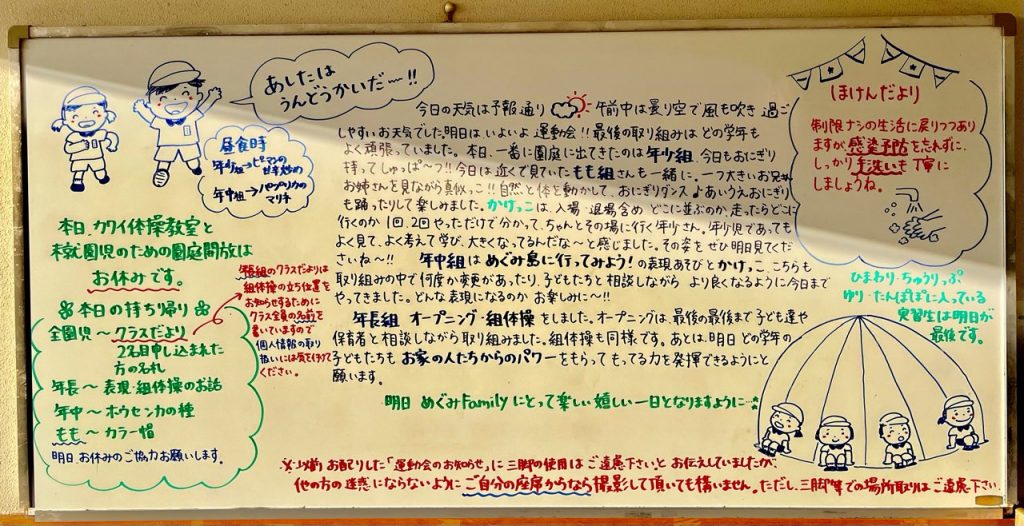 あしたは
うんどうかいだー!!
昼食時
年少組→ピーマンの甘辛炒め
年中組→パプリカのマリネ
本日、カワイ体操教室と
未就園児のための園庭開放は
お休みです。
本日の持ち帰り
全園児〜クラスだより
2名目申し込まれた
方の名札
年長〜表現・組体操のお話
年中〜ホウセンカの種
もも〜カラー帽
明日、お休みのご協力お願いします。
年長組のクラスだよりは
組体操の立ち位置を
お知らせするために
クラス全員の名前を
書いていますので
個人情報の取り
扱いには気を付けて
ください。
今日の天気は予報通り 午前中は曇り空で風も吹き過ご
しやすいお天気でした。明日は、いよいよ運動会!!最後の取り組みはどの学年も
よく頑張っていました。本日、一番に園庭に出てきたのは年少組、今日もおにぎり
持ってしゅっぱ〜つ!!今日は近くで見ていたもも組さんも一緒に。一つ大きいお兄さん
お姉さんを見ながら真似っこ!!自然と体を動かして、おにぎりダンス♪あいうえおにぎり
も踊ったりして楽しみました。かけっこは、入場・退場含め、どこに並ぶのか、走ったらどこに
行くのか1回、2回やっただけで分かって、ちゃんとその場に行く年少さん。年少児であっても
よく見て、よく考えて学び、大きくなってるんだな〜と感じました。その姿をぜひ明日見てくだ
さいね〜!!
年中組はめぐみ島に行ってみよう!の表現あそびとかけっこ、こちらも
取り組みの中で何度か変更があったり、子どもたちと相談しながらより良くなるように今日まで
やってきました。どんな表現になるのかお楽しみに〜!!
年長組 オープニング・組体操をしました。オープニングは、最後の最後まで子ども達や
保育者と相談しながら取り組みました。組体操も同様です。あとは、明日どの学年の
子どもたちもお家の人たちからのパワーをもらってもってる力を発揮できるようにと
願います。
明日 めぐみFamilyにとって楽しい嬉しい一日となりますように…
お配りした「運動会のお知らせ」に三脚の使用はご遠慮下さいとお伝えしていましたが、
他の方の迷惑にならないようにご自分の座席からなら撮影して頂いても構いません。ただし、三脚等での場所取りはご遠慮下さい。
ほけんだより
制限ナシの生活に戻りつつあり
ますが、感染予防を忘れずに、
しっかり手洗いも丁寧に
しましょうね。
ひまわり・ちゅうりっぷ
ゆり・たんぽぽに入っている
実習生は明日が
最後です。